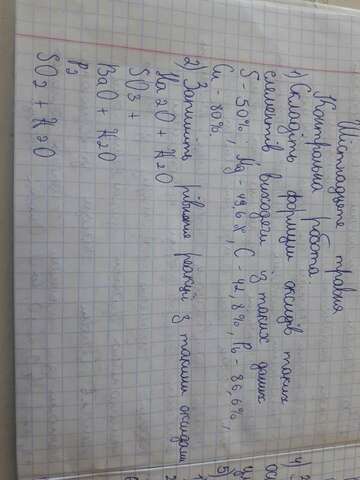 Шістнадцяте травня
Контрольна робота.
1) Складіть формули оксидів таких
елементів виходячи із таких даних
S - 50%, Mg - 49,6%, C - 42,8%, Pb - 86,6%,
Cu - 80%.
2) Запишіть рівняння реакцій з такими оксидами
Na2O + H2O
SO3 +
BaO + H2O
P2
SO2 + H2O
4)
5)